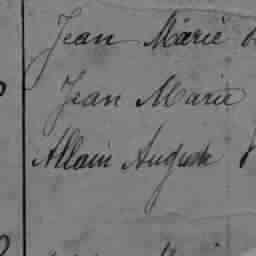 Jean Marie
Jean Marie
Allain Auguste